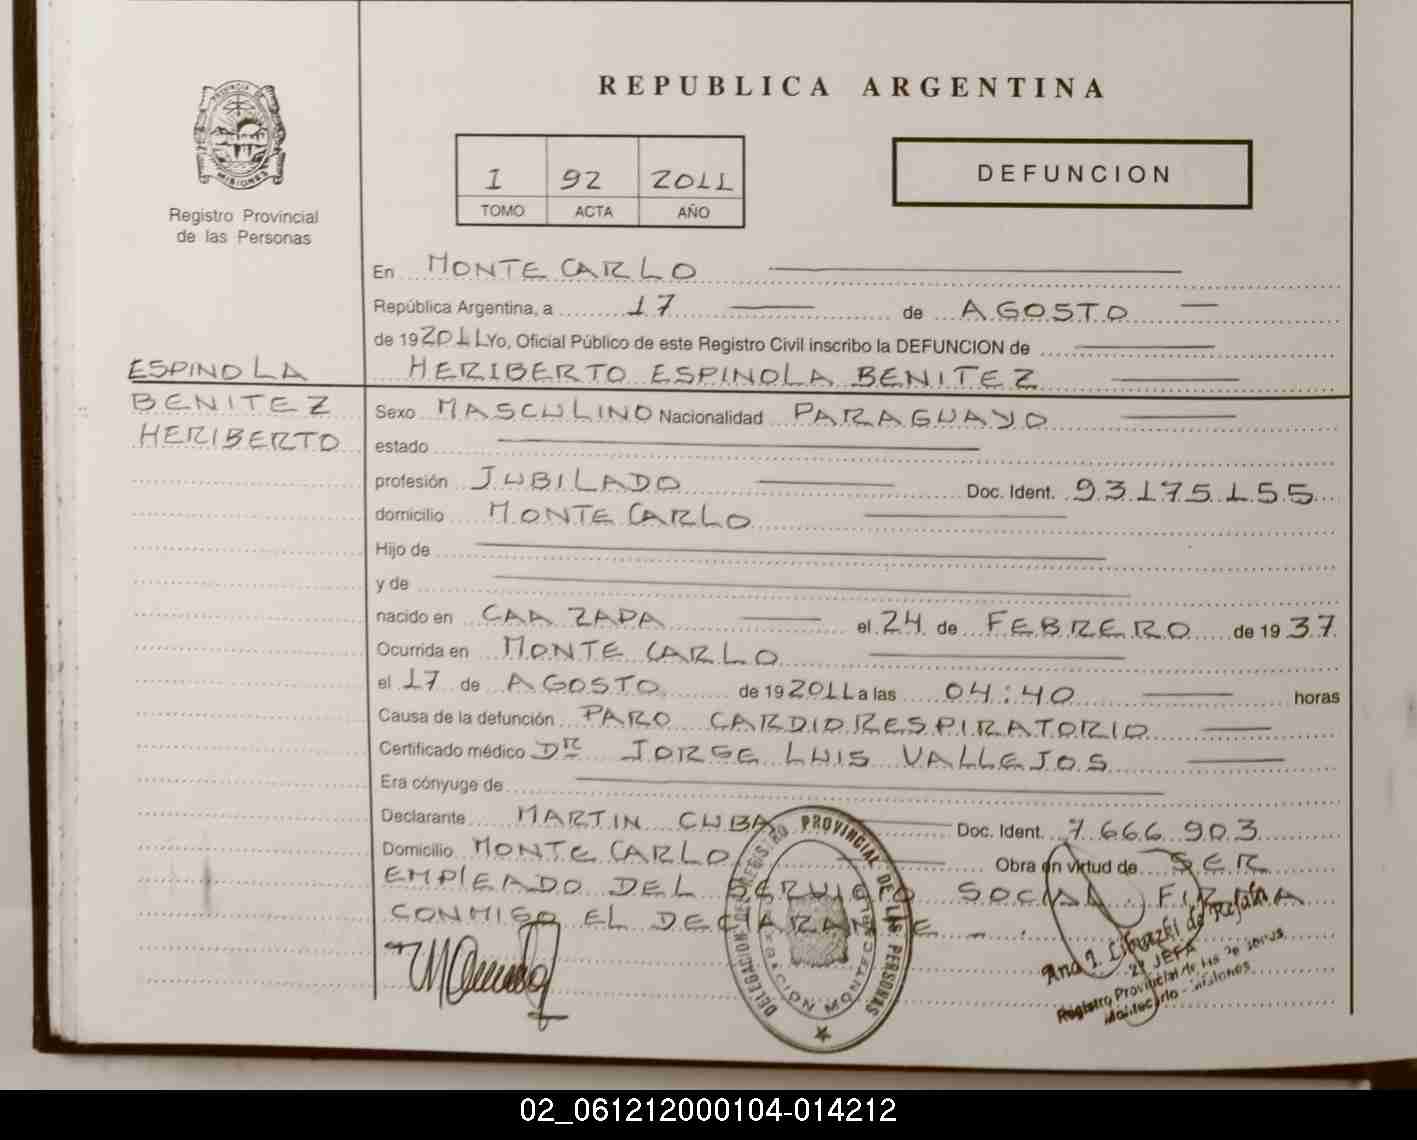 REPUBLICA ARGENTINA
PROVINCIA DE
MISIONES
Registro Provincial
de las Personas
I 92 2011
TOMO ACTA AÑO
DEFUNCION
En MONTE CARLO
República Argentina, a 17 de AGOSTO
de 192011 Yo, Oficial Público de este Registro Civil inscribo la DEFUNCION de
HERIBERTO ESPINOLA BENITEZ
ESPINOLA
BENITEZ
HERIBERTO
Sexo MASCULINO Nacionalidad PARAGUAYO
estado
profesión JUBILADO Doc. Ident. 93175155
domicilio MONTE CARLO
Hijo de
y de
nacido en CAAZAPA el 24 de FEBRERO de 1937
Ocurrida en MONTE CARLO
el 17 de AGOSTO de 192011 a las 04:40 horas
Causa de la defunción PARO CARDIORESPIRATORIO
Certificado médico DR JORGE LUIS VALLEJOS
Era cónyuge de
Declarante MARTIN CUBA Doc. Ident. 7.666.903
Domicilio MONTE CARLO Obra en virtud de SER
EMPLEADO DEL SERVICIO SOCIAL. FIRMA
CONMIGO EL DECLARANTE - .
DELEGACION DEL REGISTRO PROVINCIAL DE LAS PERSONAS
DELEGACION MONTECARLO
Ana I. de
2º JEFA
Registro Provincial de las Personas
Montecarlo - Misiones
02_061212000104-014212